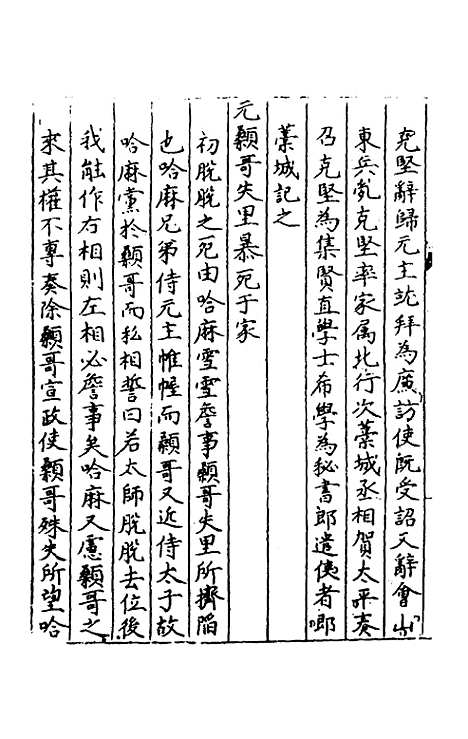 克堅辭歸元主就拜為廉訪使既受詔又辭會山
東兵亂克堅率家属北行次藁城丞相賀太平奏
召克堅為集賢直學士希學為秘書郎遣使者即
藁城記之
元顙哥失里暴死于家
初脫脫之死由哈麻雪雪詹事顙哥失里所擠陷
也哈麻兄弟侍元主帷幄而顙哥又近侍太子故
哈麻黨於顙哥而私相誓曰若太師脫脫去位後
我能作右相則左相必詹事矣哈麻又慮顙哥之
來其權不專奏除顙哥宣政使顙哥殊失所望哈